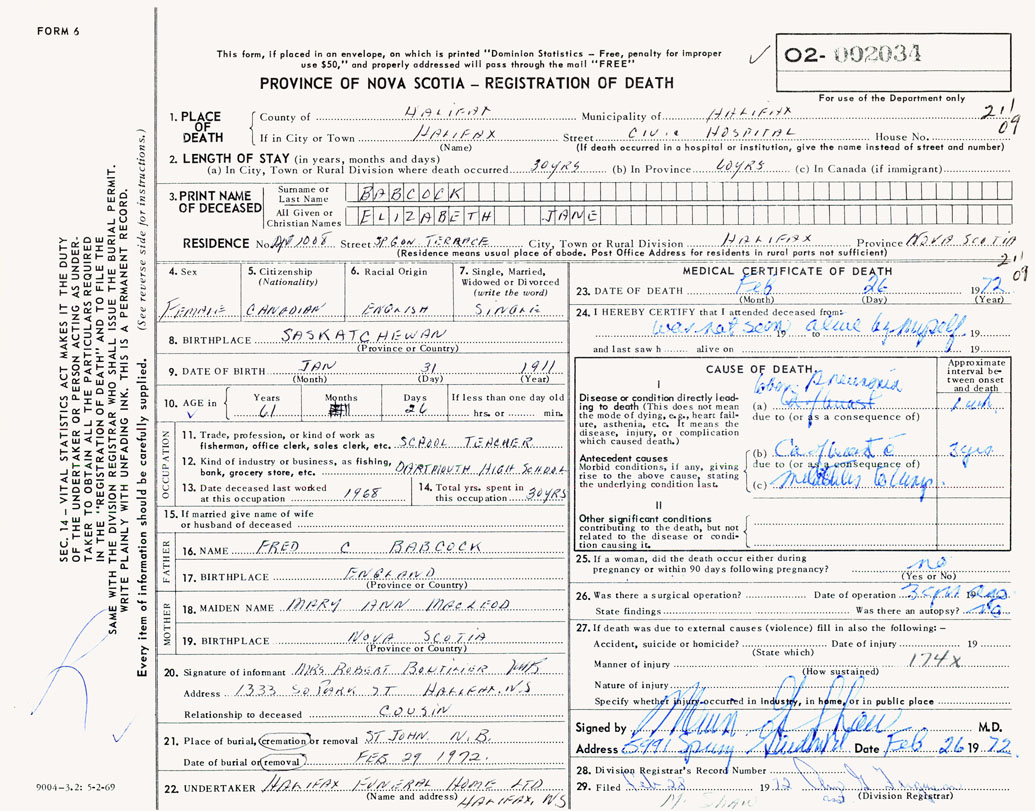 FORM 6
This form, if placed in an envelope, on which is printed "Dominion Statistics – Free, penalty for improper
use $50," and properly addressed will pass through the mail "FREE"
PROVINCE OF NOVA SCOTIA – REGISTRATION OF DEATH
02- 002034
For use of the Department only
SEC. 14 – VITAL STATISTICS ACT MAKES IT THE DUTY
OF THE UNDERTAKER OR PERSON ACTING AS UNDER-
TAKER TO OBTAIN ALL THE PARTICULARS REQUIRED
IN THE "REGISTRATION OF DEATH" AND TO FILE THE
SAME WITH THE DIVISION REGISTRAR WHO SHALL ISSUE THE BURIAL PERMIT.
WRITE PLAINLY WITH UNFADING INK. THIS IS A PERMANENT RECORD.
Every item of information should be carefully supplied. (See reverse side for instructions.)
1. PLACE OF DEATH
County of HALIFAX Municipality of HALIFAX 211
If in City or Town HALIFAX Street CIVIC HOSPITAL House No. 09
(Name) (If death occurred in a hospital or institution, give the name instead of street and number)
2. LENGTH OF STAY (in years, months and days)
(a) In City, Town or Rural Division where death occurred 30 YRS (b) In Province 60 YRS (c) In Canada (if immigrant)
3. PRINT NAME OF DECEASED
Surname or Last Name BABCOCK
All Given or Christian Names ELIZABETH JANE
RESIDENCE No. Apt 1008 Street TERRACE City, Town or Rural Division HALIFAX Province NOVA SCOTIA
(Residence means usual place of abode. Post Office Address for residents in rural parts not sufficient)
211
09
4. Sex 5. Citizenship (Nationality) 6. Racial Origin 7. Single, Married, Widowed or Divorced (write the word)
FEMALE CANADIAN ENGLISH SINGLE
8. BIRTHPLACE SASKATCHEWAN
(Province or Country)
9. DATE OF BIRTH JAN 31 1911
(Month) (Day) (Year)
10. AGE in Years Months Days If less than one day old
61 26 hrs. or min.
OCCUPATION
11. Trade, profession, or kind of work as
fisherman, office clerk, sales clerk, etc. SCHOOL TEACHER
12. Kind of industry or business, as fishing,
bank, grocery store, etc. DARTMOUTH HIGH SCHOOL
13. Date deceased last worked at this occupation 1968
14. Total yrs. spent in this occupation 30 YRS
15. If married give name of wife
or husband of deceased
FATHER
16. NAME FRED C BABCOCK
17. BIRTHPLACE ENGLAND
(Province or Country)
MOTHER
18. MAIDEN NAME MARY ANN MACLEOD
19. BIRTHPLACE NOVA SCOTIA
(Province or Country)
20. Signature of informant MRS. ROBERT BOUTILIER
Address 1333 SO PARK ST HALIFAX, NS
Relationship to deceased COUSIN
21. Place of burial, cremation or removal ST JOHN, N.B.
Date of burial or removal FEB. 29 1972.
22. UNDERTAKER HALIFAX FUNERAL HOME LTD
(Name and address) HALIFAX, NS
9004-3.2: 5-2-69
MEDICAL CERTIFICATE OF DEATH
23. DATE OF DEATH Feb 26 1972
(Month) (Day) (Year)
24. I HEREBY CERTIFY that I attended deceased from:
was not seen alive by myself
19 to 19
and last saw h alive on 19
CAUSE OF DEATH
Approximate interval between onset and death
I
Disease or condition directly lead-
ing to death (This does not mean
the mode of dying, e.g., heart fail-
ure, asthenia, etc. It means the
disease, injury, or complication
which caused death.)
Pneumonia
(a) Ca of breast 1 wk.
due to (or as a consequence of)
Antecedent causes
Morbid conditions, if any, giving
rise to the above cause, stating
the underlying condition last.
(b) Ca of breast 3 yrs
due to (or as a consequence of)
(c) to lung.
II
Other significant conditions
contributing to the death, but not
related to the disease or condi-
tion causing it.
25. If a woman, did the death occur either during
pregnancy or within 90 days following pregnancy? no
(Yes or No)
26. Was there a surgical operation? Date of operation 3 yrs 19 ago
State findings Was there an autopsy? No
27. If death was due to external causes (violence) fill in also the following: –
Accident, suicide or homicide? Date of injury 19
(State which)
Manner of injury 174X
(How sustained)
Nature of injury
Specify whether injury occurred in Industry, in home, or in public place
Signed by M.D.
Address 5991 Spring Date Feb 26 1972
28. Division Registrar's Record Number
29. Filed Feb 28 1972
M. SHAW (Division Registrar)